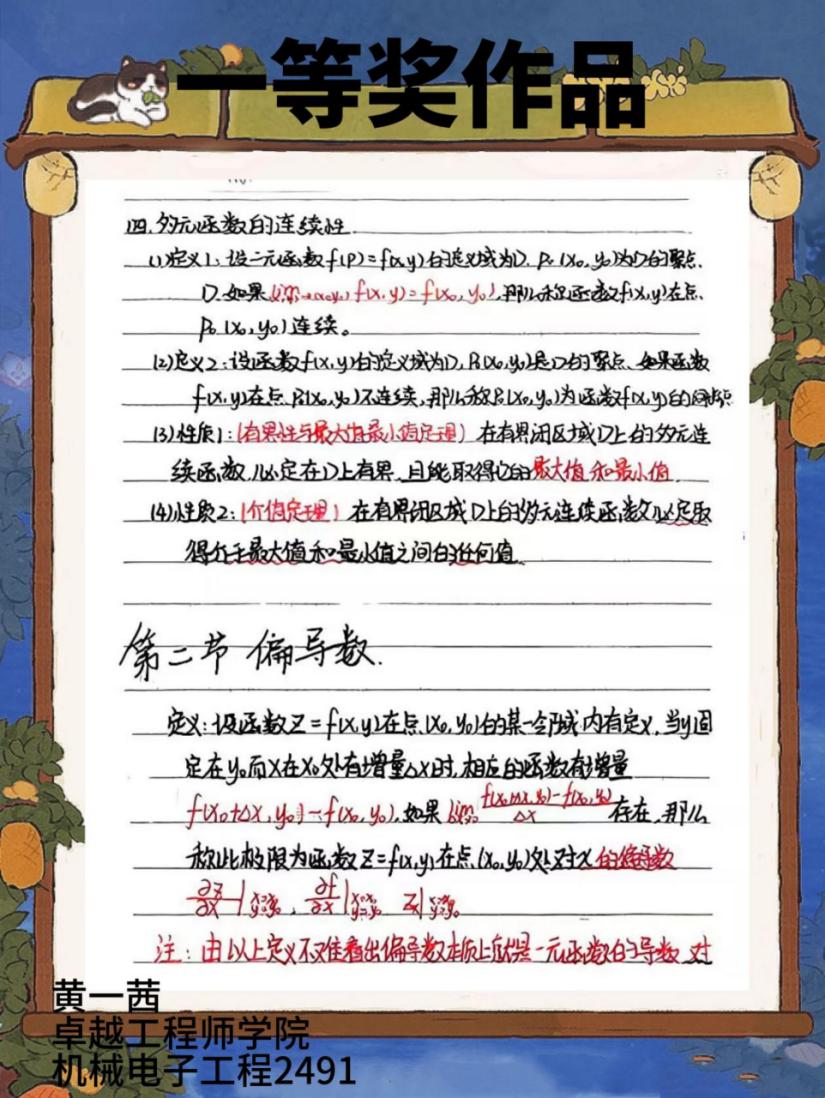 一等奖作品
四.多元函数的连续性
(1)定义1:设二元函数f(P)=f(x,y)的定义域为D.P₀(x₀,y₀)为D的聚点.
D.如果lim(x,y)→(x₀,y₀) f(x,y)=f(x₀,y₀),那么称函数f(x,y)在点
P₀(x₀,y₀)连续。
(2)定义2:设函数f(x,y)的定义域为D,P₀(x₀,y₀)是D的聚点.如果函数
f(x,y)在点P₀(x₀,y₀)不连续,那么称P₀(x₀,y₀)为函数f(x,y)的间断点
(3)性质1:(有界性与最大值最小值定理)在有界闭区域D上的多元连
续函数,必定在D上有界,且能取得它的最大值和最小值
(4)性质2:(介值定理)在有界闭区域D上的多元连续函数必定取
得介于最大值和最小值之间的任何值
第二节 偏导数.
定义:设函数z=f(x,y)在点(x₀,y₀)的某一邻域内有定义,当y固
定在y₀而x在x₀处有增量△x时,相应的函数有增量
f(x₀+△x,y₀)-f(x₀,y₀),如果lim f(x₀+△x,y₀)-f(x₀,y₀)/△x 存在,那么
称此极限为函数z=f(x,y)在点(x₀,y₀)处对x的偏导数
∂z/∂x|x=x₀ y=y₀, ∂f/∂x|x=x₀ y=y₀ zₓ|x=x₀ y=y₀
注:由以上定义不难看出偏导数本质上就是一元函数的导数,对
黄一茜
卓越工程师学院
机械电子工程2491